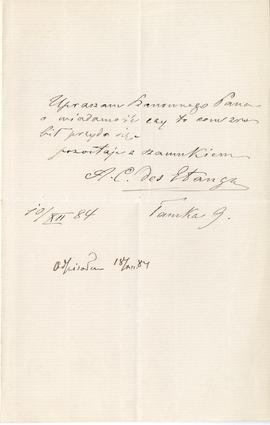 Upraszam Szanownego Pana
o wiadomość czy to com zro
bił przyda się
pozostaję z szacunkiem
A. C. des Etangs
19/XII 84 Tamka 9.
18/XII 84